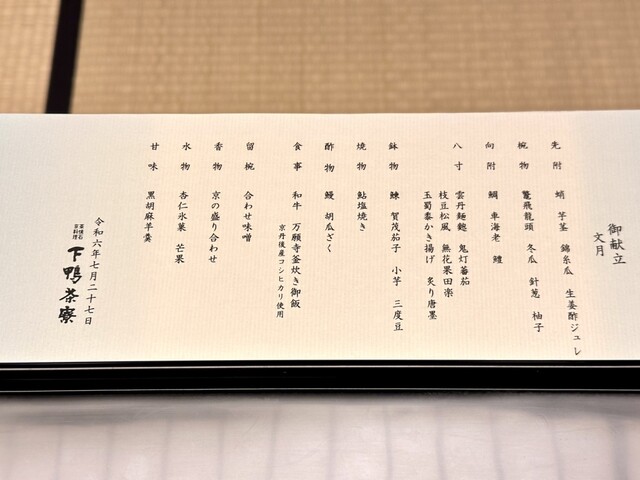 御献立
文月
先附 蛸 芋茎 錦糸瓜 生姜酢ジュレ
椀物 鼈飛龍頭 冬瓜 針葱 柚子
向附 鯛 車海老 鱧
八寸 雲丹麺鎚 鬼灯蕃茄
枝豆松風 無花果田楽
玉蜀黍かき揚げ 炙り唐墨
鉢物 鰊 賀茂茄子 小芋 三度豆
焼物 鮎塩焼き
酢物 鰻 胡瓜ざく
食事 和牛 万願寺釜炊き御飯
京丹後産コシヒカリ使用
留椀 合わせ味噌
香物 京の盛り合わせ
水物 杏仁氷菓 芒果
甘味 黒胡麻羊羹
令和六年七月二十七日
茶懐石
京料理
下鴨茶寮